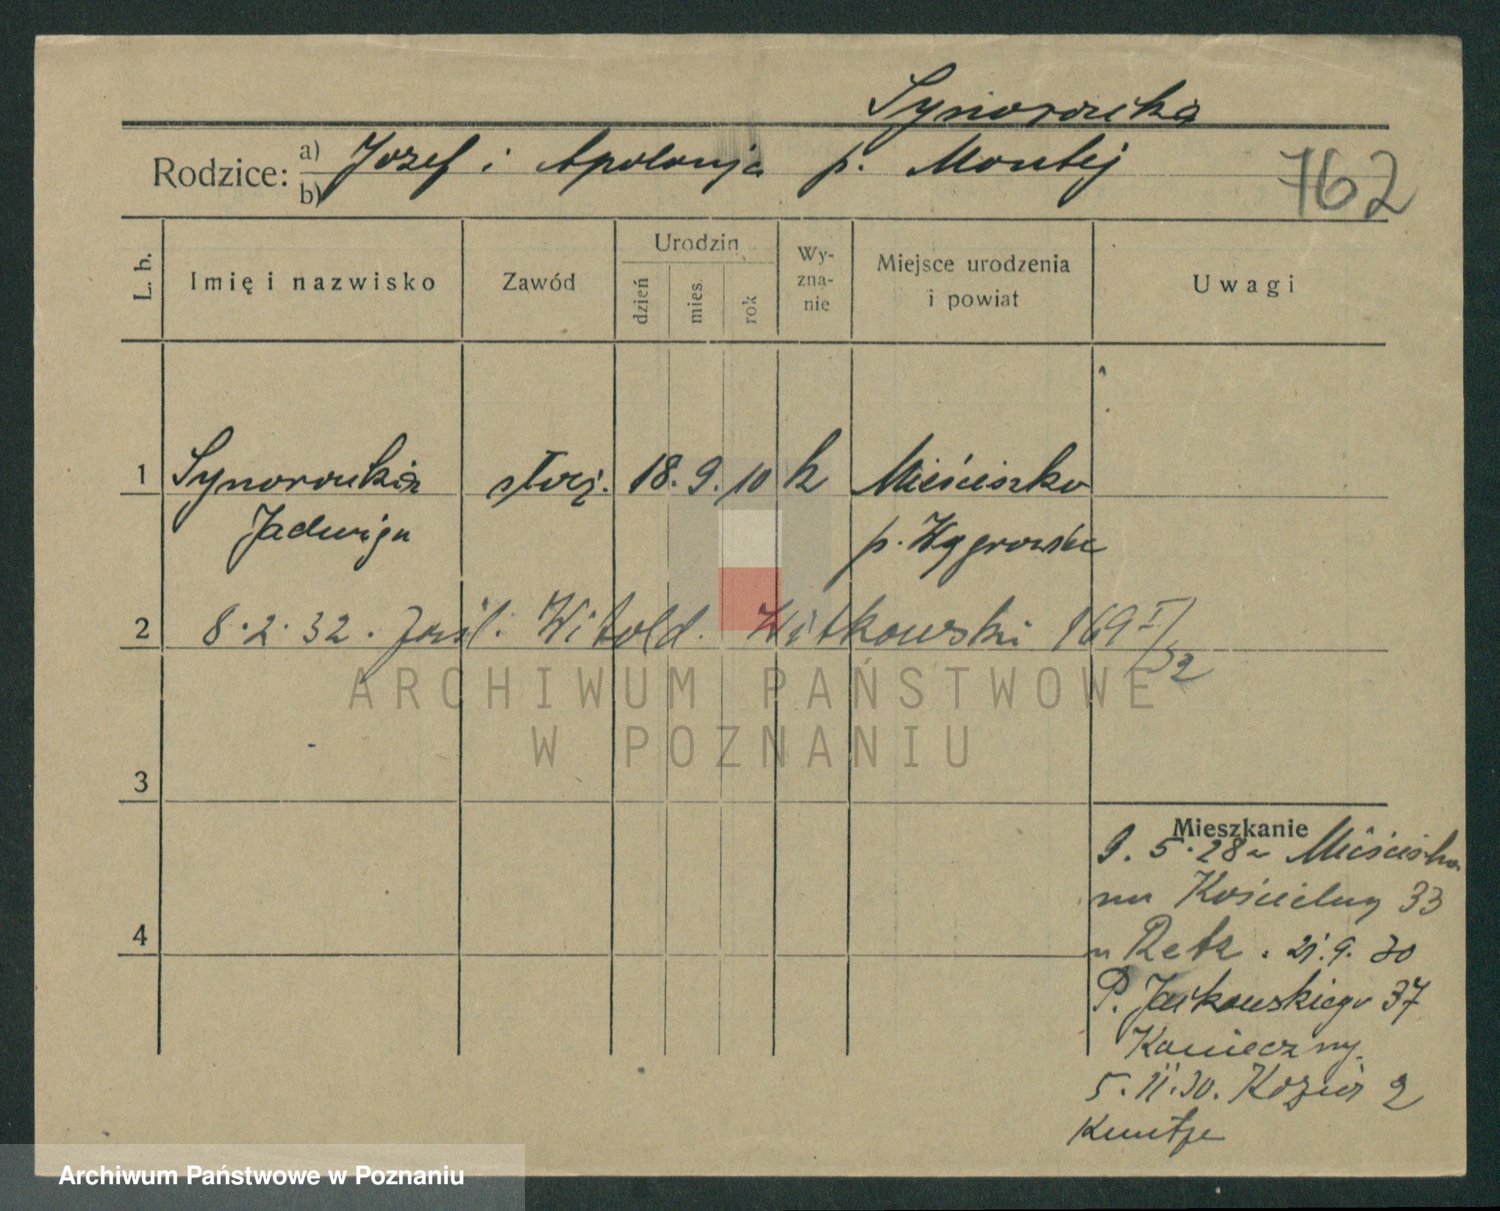 Synoradzka
Rodzice: a) Józef i Apolonja p. Montej
b)
762
L. b.
Imię i nazwisko
Zawód
Urodzin
dzień
mies.
rok
Wy-
zna-
nie
Miejsce urodzenia
i powiat
Uwagi
1 Synoradzka służ. 18. 9. 10 k Mieścisko
Jadwiga p. Wągrowiec
2 8.2.32. zaśl. Witold Witkowski 169 I/32
ARCHIWUM PAŃSTWOWE
W POZNANIU
3
Mieszkanie
9. 5. 28 Mieścisko
Kościelny 33
u Retz. 21.9.30
P. Jackowskiego 37
Konieczny.
5.11.30. Kozia 2
4
Archiwum Państwowe w Poznaniu